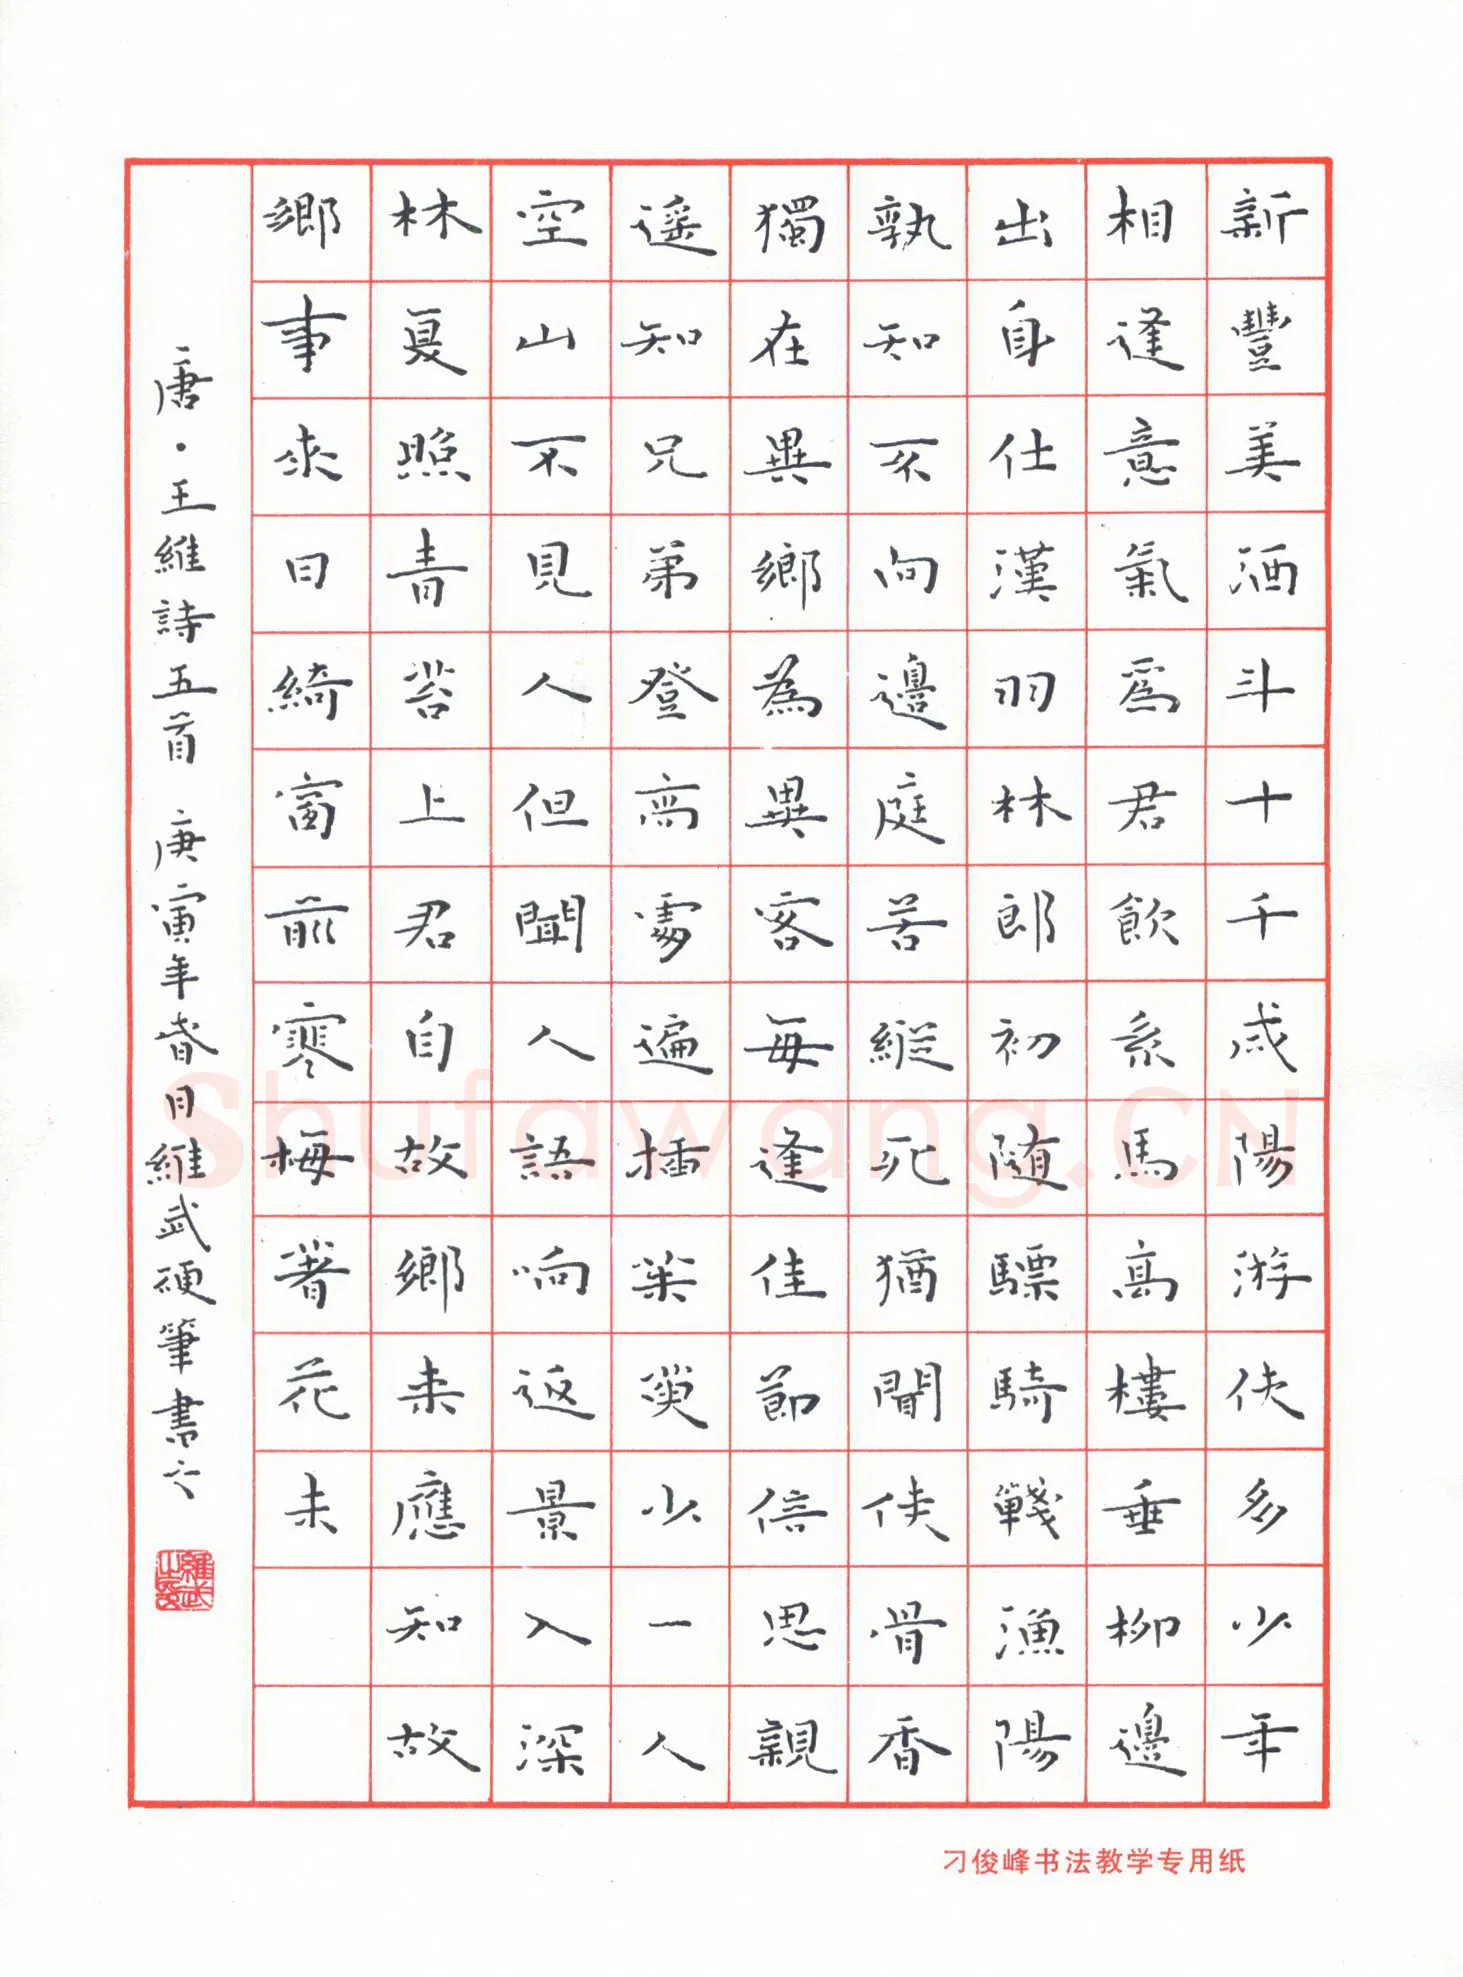 新豐美酒斗十千咸陽游俠多少年
相逢意氣爲君飲系馬高樓垂柳邊
出身仕漢羽林郎初隨驃騎戰漁陽
孰知不向邊庭苦縱死猶聞俠骨香
獨在異鄉為異客每逢佳節倍思親
遥知兄弟登高處遍插茱萸少一人
空山不見人但聞人語响返景入深
林复照青苔上君自故鄉来應知故
鄉事來日綺窗前寒梅著花未
唐·王維詩五首 庚寅年春月維武硬筆書之
維武之印
Shufawang.CN
刁俊峰书法教学专用纸